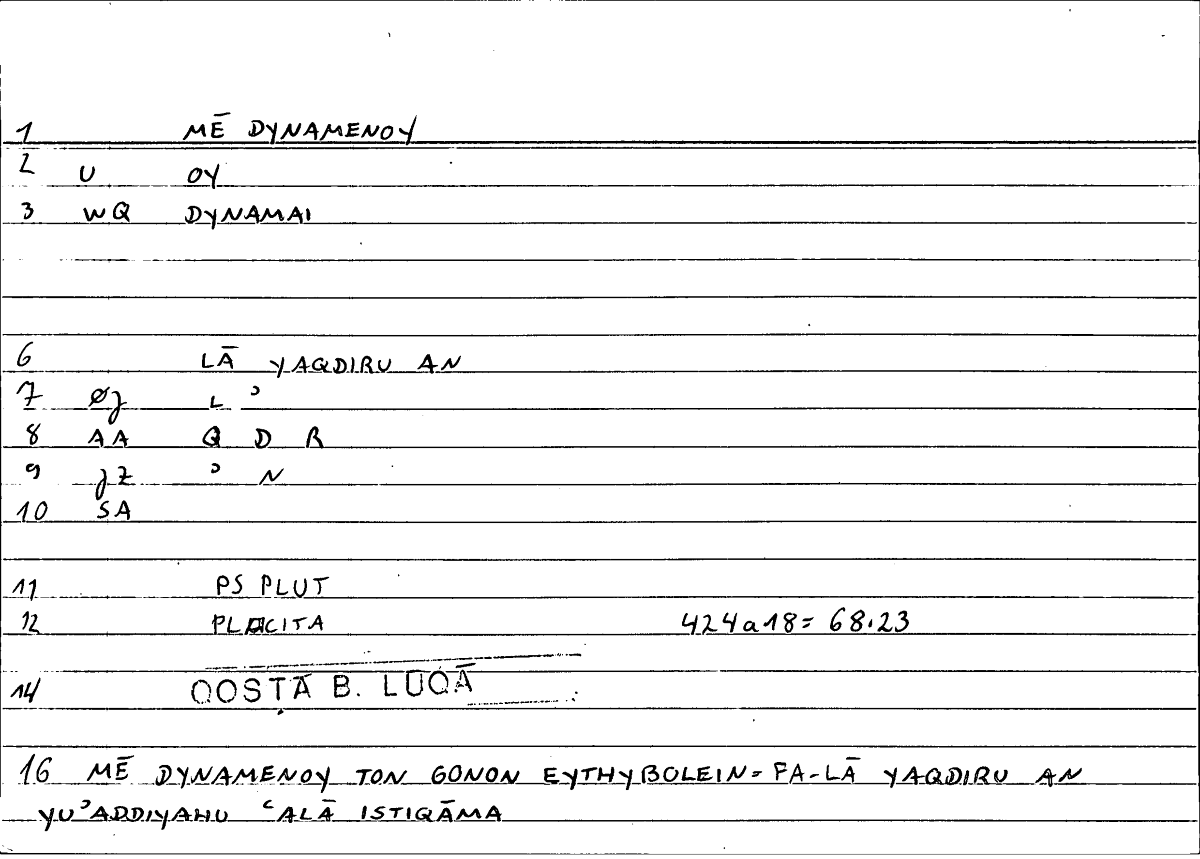 1 MĒ DYNAMENOY
2 U OY
3 WQ DYNAMAI
6 LĀ YAQDIRU AN
7 L ʾ
8 AA Q D R
9 ʾ N
10 SA
11 PS PLUT
12 PLACITA 424a18= 68.23
14 QOSṬĀ B. LUQĀ
16 MĒ DYNAMENOY TON GONON EYTHYBOLEIN= FA-LĀ YAQDIRU AN
YUʾADDIYAHU ʿALĀ ISTIQĀMA